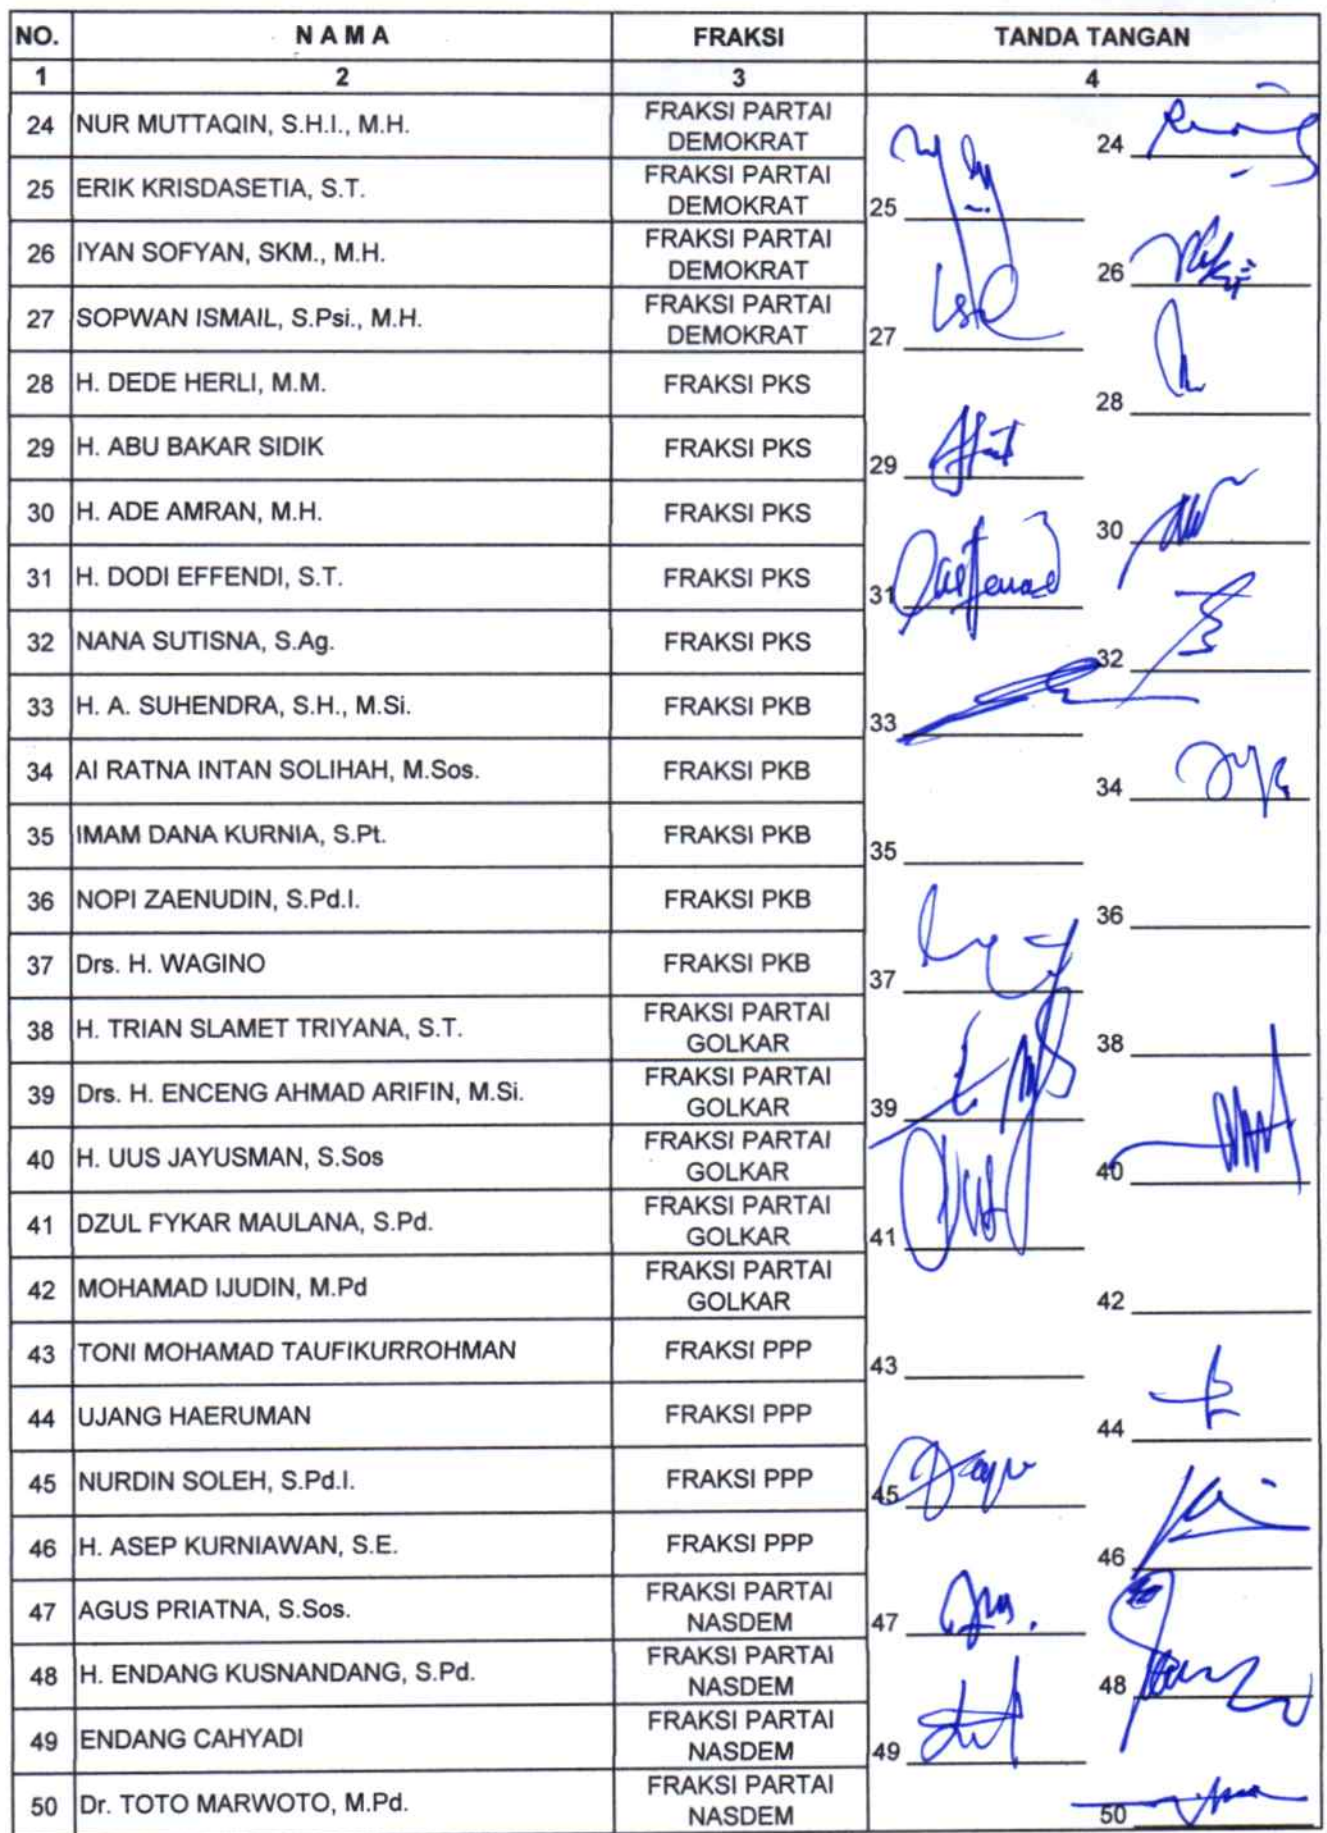 NO. N A M A FRAKSI TANDA TANGAN
1 2 3 4
24 NUR MUTTAQIN, S.H.I., M.H. FRAKSI PARTAI DEMOKRAT 24
25 ERIK KRISDASETIA, S.T. FRAKSI PARTAI DEMOKRAT 25
26 IYAN SOFYAN, SKM., M.H. FRAKSI PARTAI DEMOKRAT 26
27 SOPWAN ISMAIL, S.Psi., M.H. FRAKSI PARTAI DEMOKRAT 27
28 H. DEDE HERLI, M.M. FRAKSI PKS 28
29 H. ABU BAKAR SIDIK FRAKSI PKS 29
30 H. ADE AMRAN, M.H. FRAKSI PKS 30
31 H. DODI EFFENDI, S.T. FRAKSI PKS 31
32 NANA SUTISNA, S.Ag. FRAKSI PKS 32
33 H. A. SUHENDRA, S.H., M.Si. FRAKSI PKB 33
34 AI RATNA INTAN SOLIHAH, M.Sos. FRAKSI PKB 34
35 IMAM DANA KURNIA, S.Pt. FRAKSI PKB 35
36 NOPI ZAENUDIN, S.Pd.I. FRAKSI PKB 36
37 Drs. H. WAGINO FRAKSI PKB 37
38 H. TRIAN SLAMET TRIYANA, S.T. FRAKSI PARTAI GOLKAR 38
39 Drs. H. ENCENG AHMAD ARIFIN, M.Si. FRAKSI PARTAI GOLKAR 39
40 H. UUS JAYUSMAN, S.Sos FRAKSI PARTAI GOLKAR 40
41 DZUL FYKAR MAULANA, S.Pd. FRAKSI PARTAI GOLKAR 41
42 MOHAMAD IJUDIN, M.Pd FRAKSI PARTAI GOLKAR 42
43 TONI MOHAMAD TAUFIKURROHMAN FRAKSI PPP 43
44 UJANG HAERUMAN FRAKSI PPP 44
45 NURDIN SOLEH, S.Pd.I. FRAKSI PPP 45
46 H. ASEP KURNIAWAN, S.E. FRAKSI PPP 46
47 AGUS PRIATNA, S.Sos. FRAKSI PARTAI NASDEM 47
48 H. ENDANG KUSNANDANG, S.Pd. FRAKSI PARTAI NASDEM 48
49 ENDANG CAHYADI FRAKSI PARTAI NASDEM 49
50 Dr. TOTO MARWOTO, M.Pd. FRAKSI PARTAI NASDEM 50